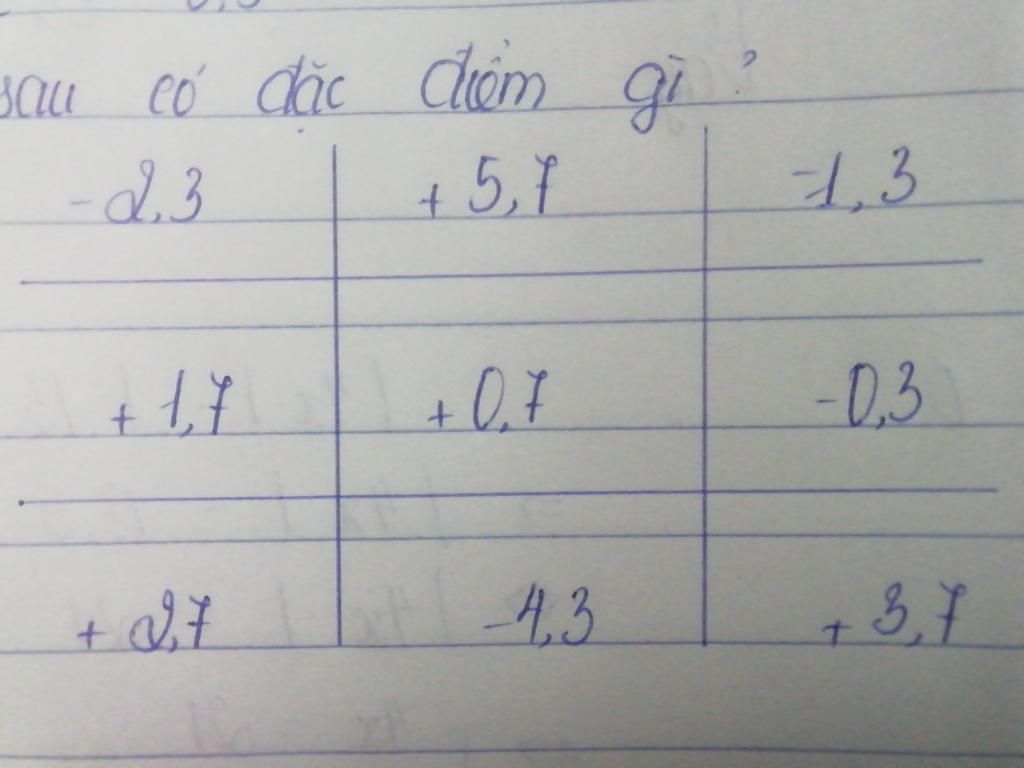 sau có đặc điểm gì?
-2,3 +5,7 -1,3
+1,7 +0,7 -0,3
+2,7 -4,3 +3,7